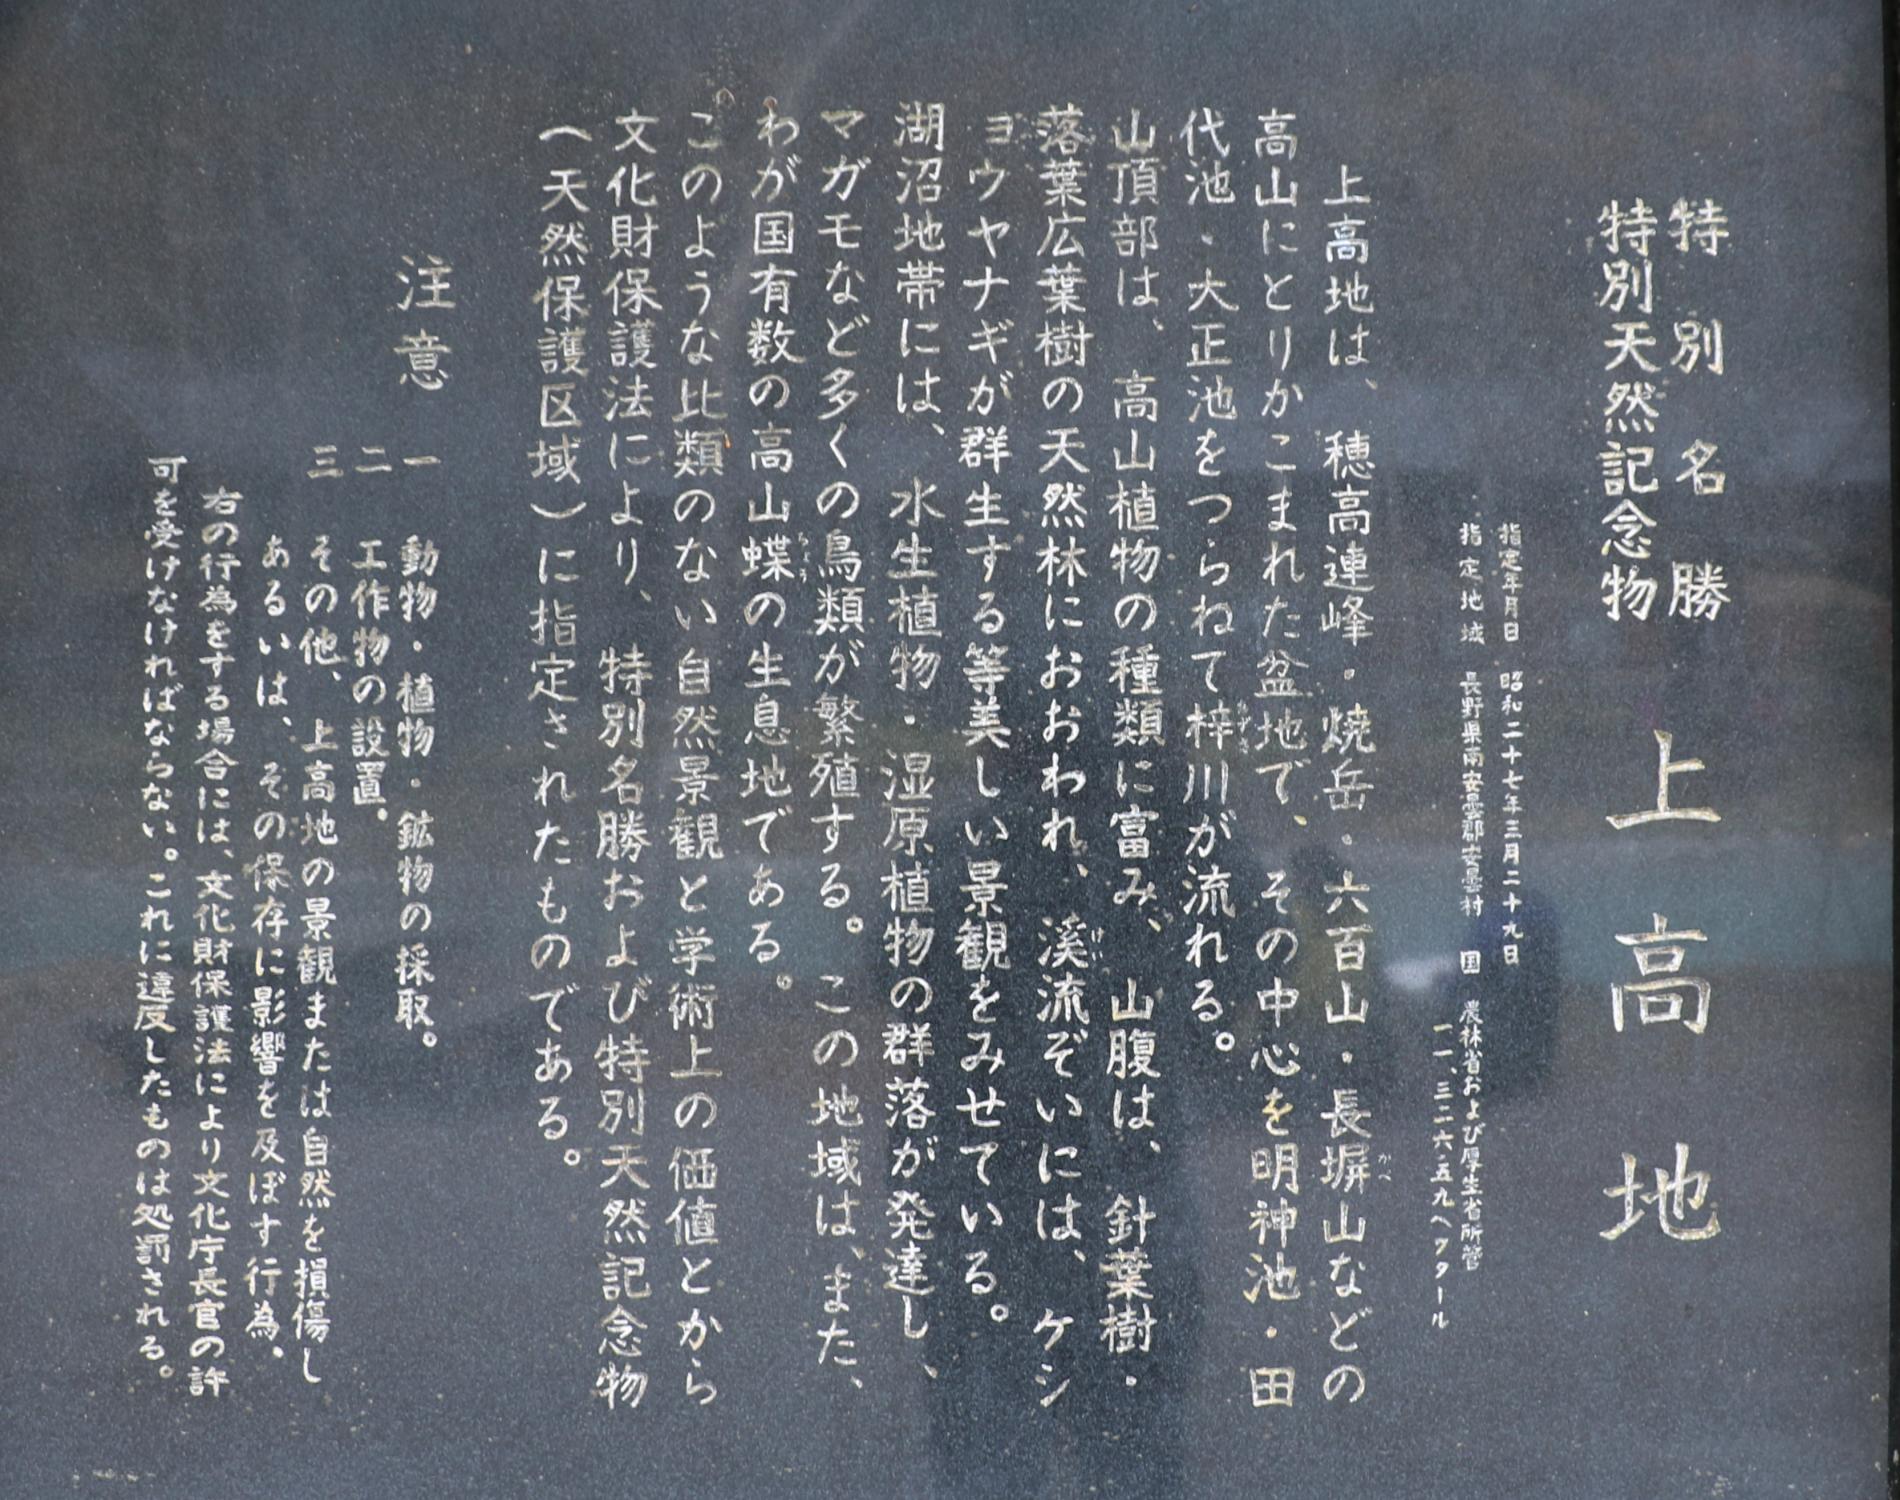 特別名勝
特別天然記念物
上高地
指定年月日 昭和二十七年三月二十九日
指定地域 長野県南安曇郡安曇村 国 農林省および厚生省所管
一一、三二六・五九ヘクタール
上高地は、穂高連峰・焼岳・六百山・長塀山などの
かべ
高山にとりかこまれた盆地で、その中心を明神池・田
代池・大正池をつらねて梓川が流れる。
あずさ
山頂部は、高山植物の種類に富み、山腹は、針葉樹・
落葉広葉樹の天然林におおわれ、溪流ぞいには、ケシ
けい
ョウヤナギが群生する等美しい景観をみせている。
湖沼地帯には、水生植物・湿原植物の群落が発達し、
マガモなど多くの鳥類が繁殖する。この地域は、また、
わが国有数の高山蝶の生息地である。
ちょう
このような比類のない自然景観と学術上の価値とから
文化財保護法により、特別名勝および特別天然記念物
(天然保護区域)に指定されたものである。
注意
一 動物・植物・鉱物の採取。
二 工作物の設置。
三 その他、上高地の景観または自然を損傷し
あるいは、その保存に影響を及ぼす行為。
右の行為をする場合には、文化財保護法により文化庁長官の許
可を受けなければならない。これに違反したものは処罰される。